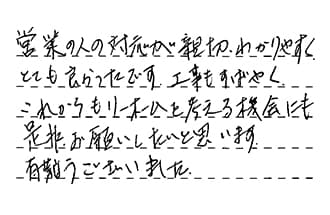 営業の人の対応が親切、わかりやすく
とても良かったです。工事もすばやく、
これからもリーホームを考える機会にも
是非お願いしたいと思います。
有難うございました。